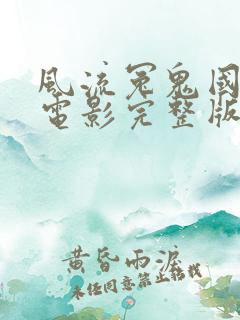 風流冤鬼國
電影完整版
黃昏雨淚
未经同意禁止转载